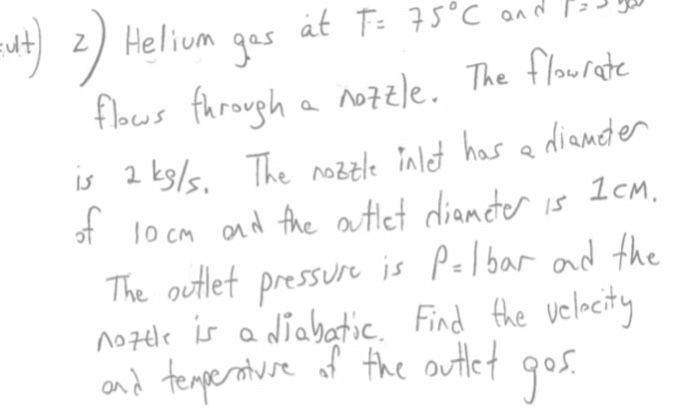 2) Helium gas at T= 75°C and
flows through a nozzle. The flowrate
is 2 kg/s. The nozzle inlet has a diameter
of 10 cm and the outlet diameter is 1 cm.
The outlet pressure is P=1bar and the
nozzle is adiabatic. Find the velocity
and temperature of the outlet gas.